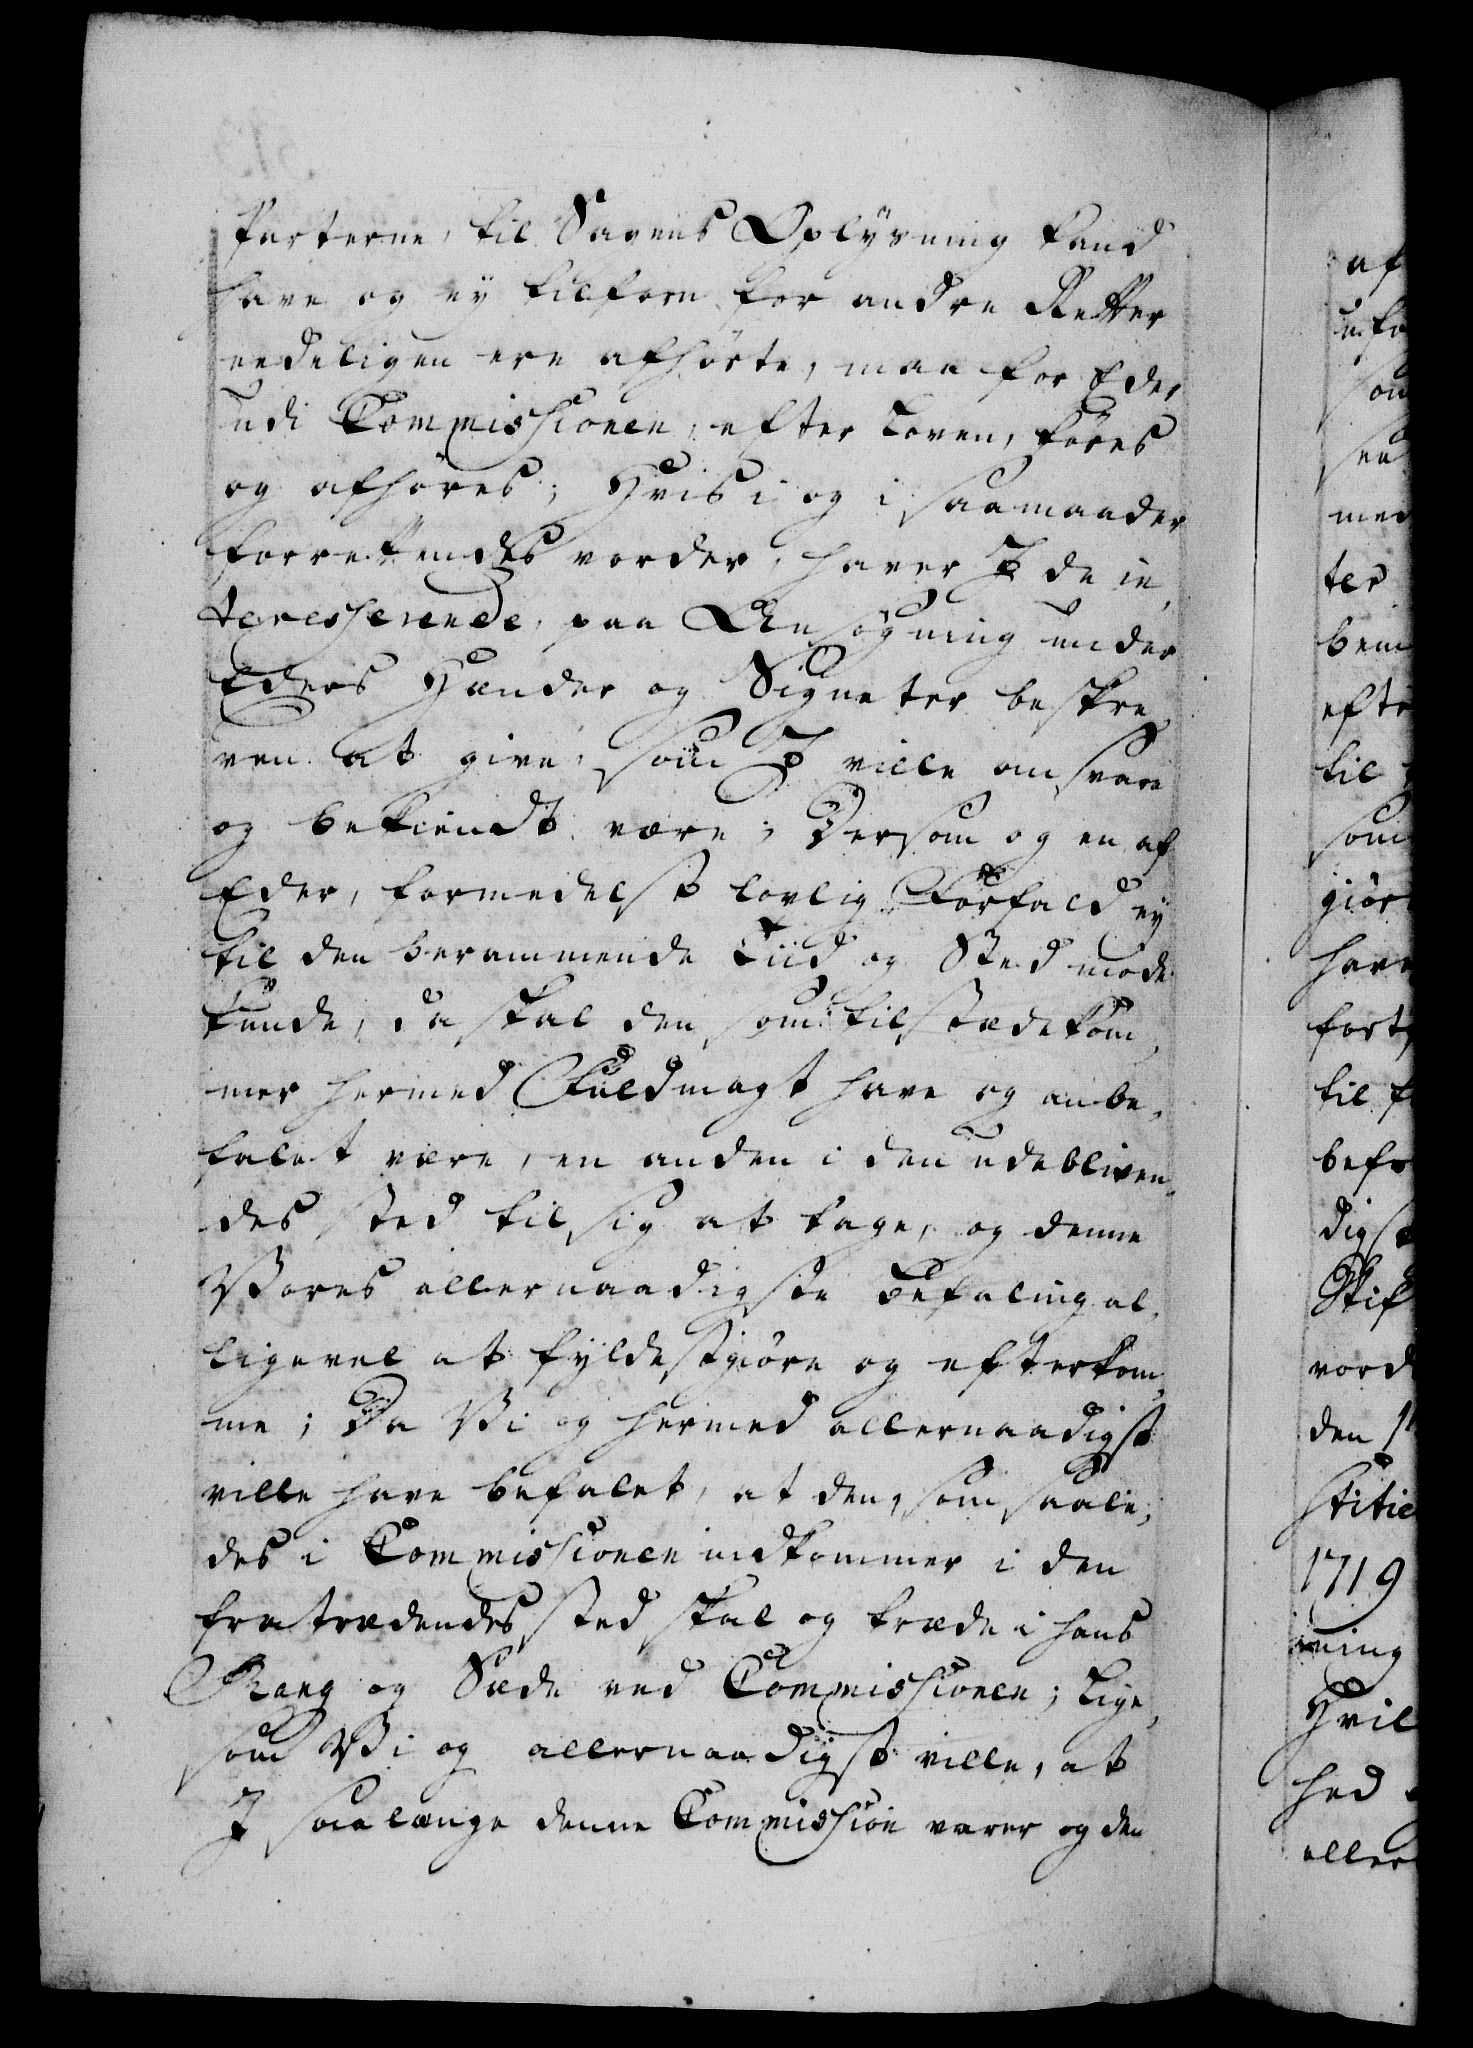 Parterne, til Sagens Oplysning kand
have og ey tilforn for andre Retter
eedeligen ere afhørte, maa for Eder
udi Commissionen, efter Loven, føres
og afhøres; Hvis i og i saamaader
forrettendes vorder, haver I de in,
teresserende, paa Ansøgning under
Eders Hænder og Signeter beskre,
ven at give, som I ville ansvare
og bekiendt være; Dersom og en af
Eder, formedelst lovlig Forfald ey
til den berammende Tiid og Sted møde
kunde, da skal den som tilstædekom,
mer hermed Fuldmagt have og anbe,
falet være, en anden i den udebliven,
des sted til sig at tage, og denne
Vores allernaadigste Befaling al,
ligevel at fyldestgiøre og efterkom,
me; Da Vi og hermed allernaadigst
ville have befalet, at den, som saale,
des i Commissionen indkommer i den
fratrædendes sted skal og træde i hans
Rang og Sæde ved Commissionen; Lige,
som Vi og allernaadigst ville, at
I saalænge denne Commission varer og den
af
som
med
ter
bem
efte
til
som
giør
have
fort
til f
befr
digst
Stif
vord
den 1
stitie
1719
ning
Hvil
hed
aller